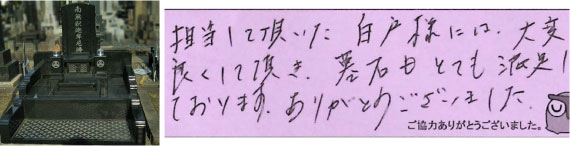 南無釈迦牟尼佛
担当して頂いた 白戸様には、大変
良くして頂き、墓石もとても満足し
ております。ありがとうございました。
ご協力ありがとうございました。